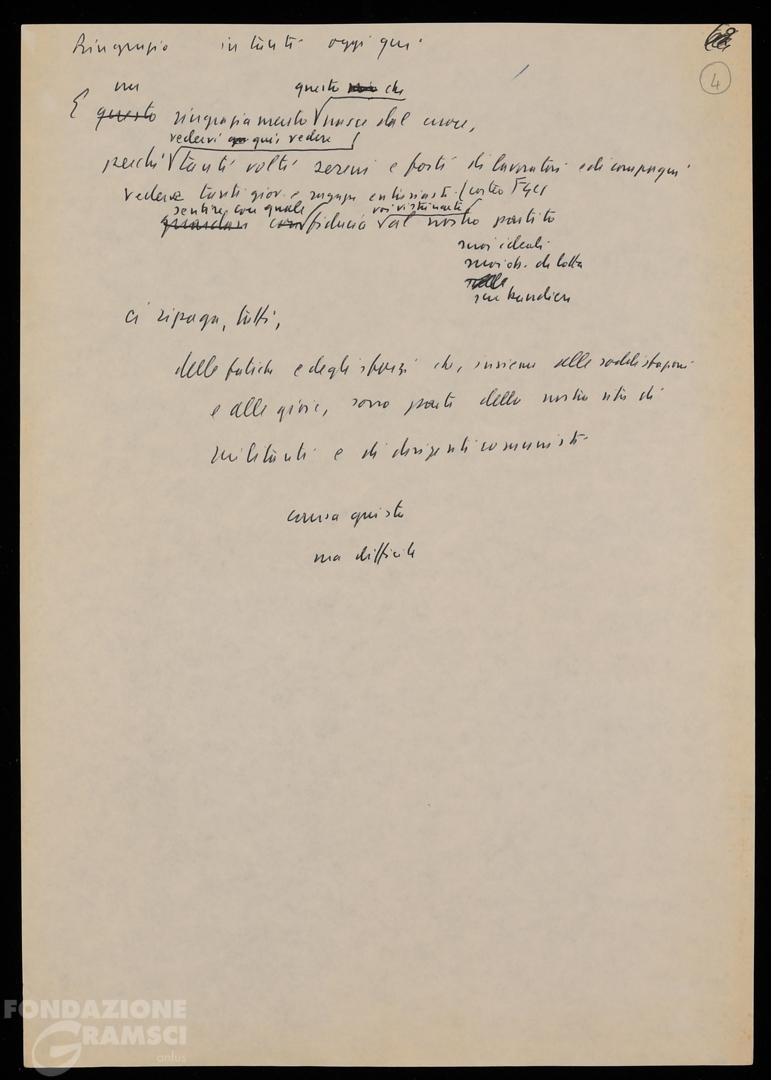 Ringrazio in tanti oggi qui
4
un questo che
È questo ringraziamento nasce dal cuore,
vedervi qui vedere
perché tanti volti sereni e forti di lavoratori e di compagni
vedere tanti giov. e ragazze entusiasti (corteo FGCI
sentire con quale voi vi stringete
guardare con fiducia al nostro partito
suoi ideali
suoi ob. di lotta
sue bandiere
ci ripaga, tutti,
delle fatiche e degli sforzi che, insieme alle soddisfazioni
e alle gioie, sono parte della nostra vita di
militanti e di dirigenti comunisti
causa giusta
ma difficile
FONDAZIONE
GRAMSCI
onlus